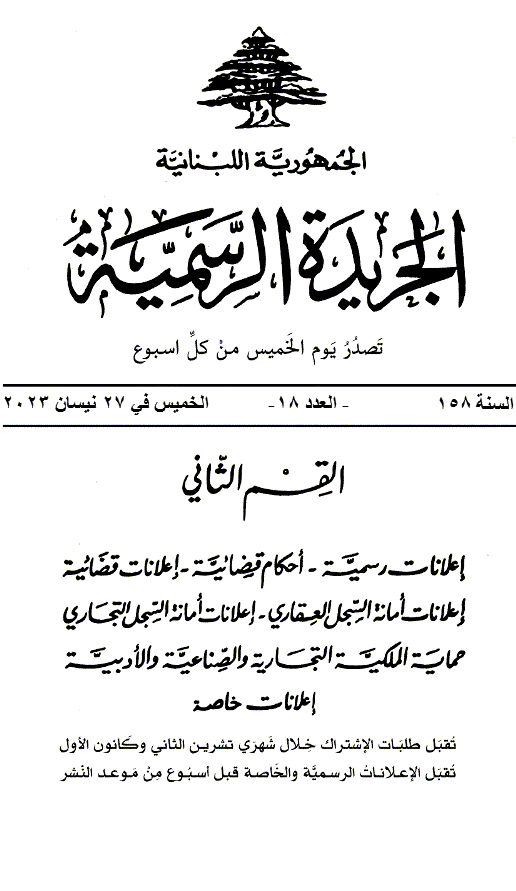 الجمهوريَّة اللبنانيَّة
الجريدة الرسميَّة
تَصدُرُ يَوم الخَميس منْ كلِّ اسبوع
السنة ١٥٨ - العدد ١٨- الخميس في ٢٧ نيسان ٢٠٢٣
القِسْم الثّاني
إعلانات رسميَّة - أحكام قضائيَّة - إعلانات قضائية
إعلانات أمانة السِّجل العقاري - إعلانات أمانة السِّجل التجاري
حماية الملكيَّة التجارية والصِّناعيَّة والأدبيَّة
إعلانات خاصة
تُقبَل طلبَات الإشتراك خِلال شَهرَي تشرين الثاني وكَانون الأول
تُقبَل الإعلاناتُ الرسميَّة والخَاصة قبل أسبُوع مِنْ مَوعد النَشر